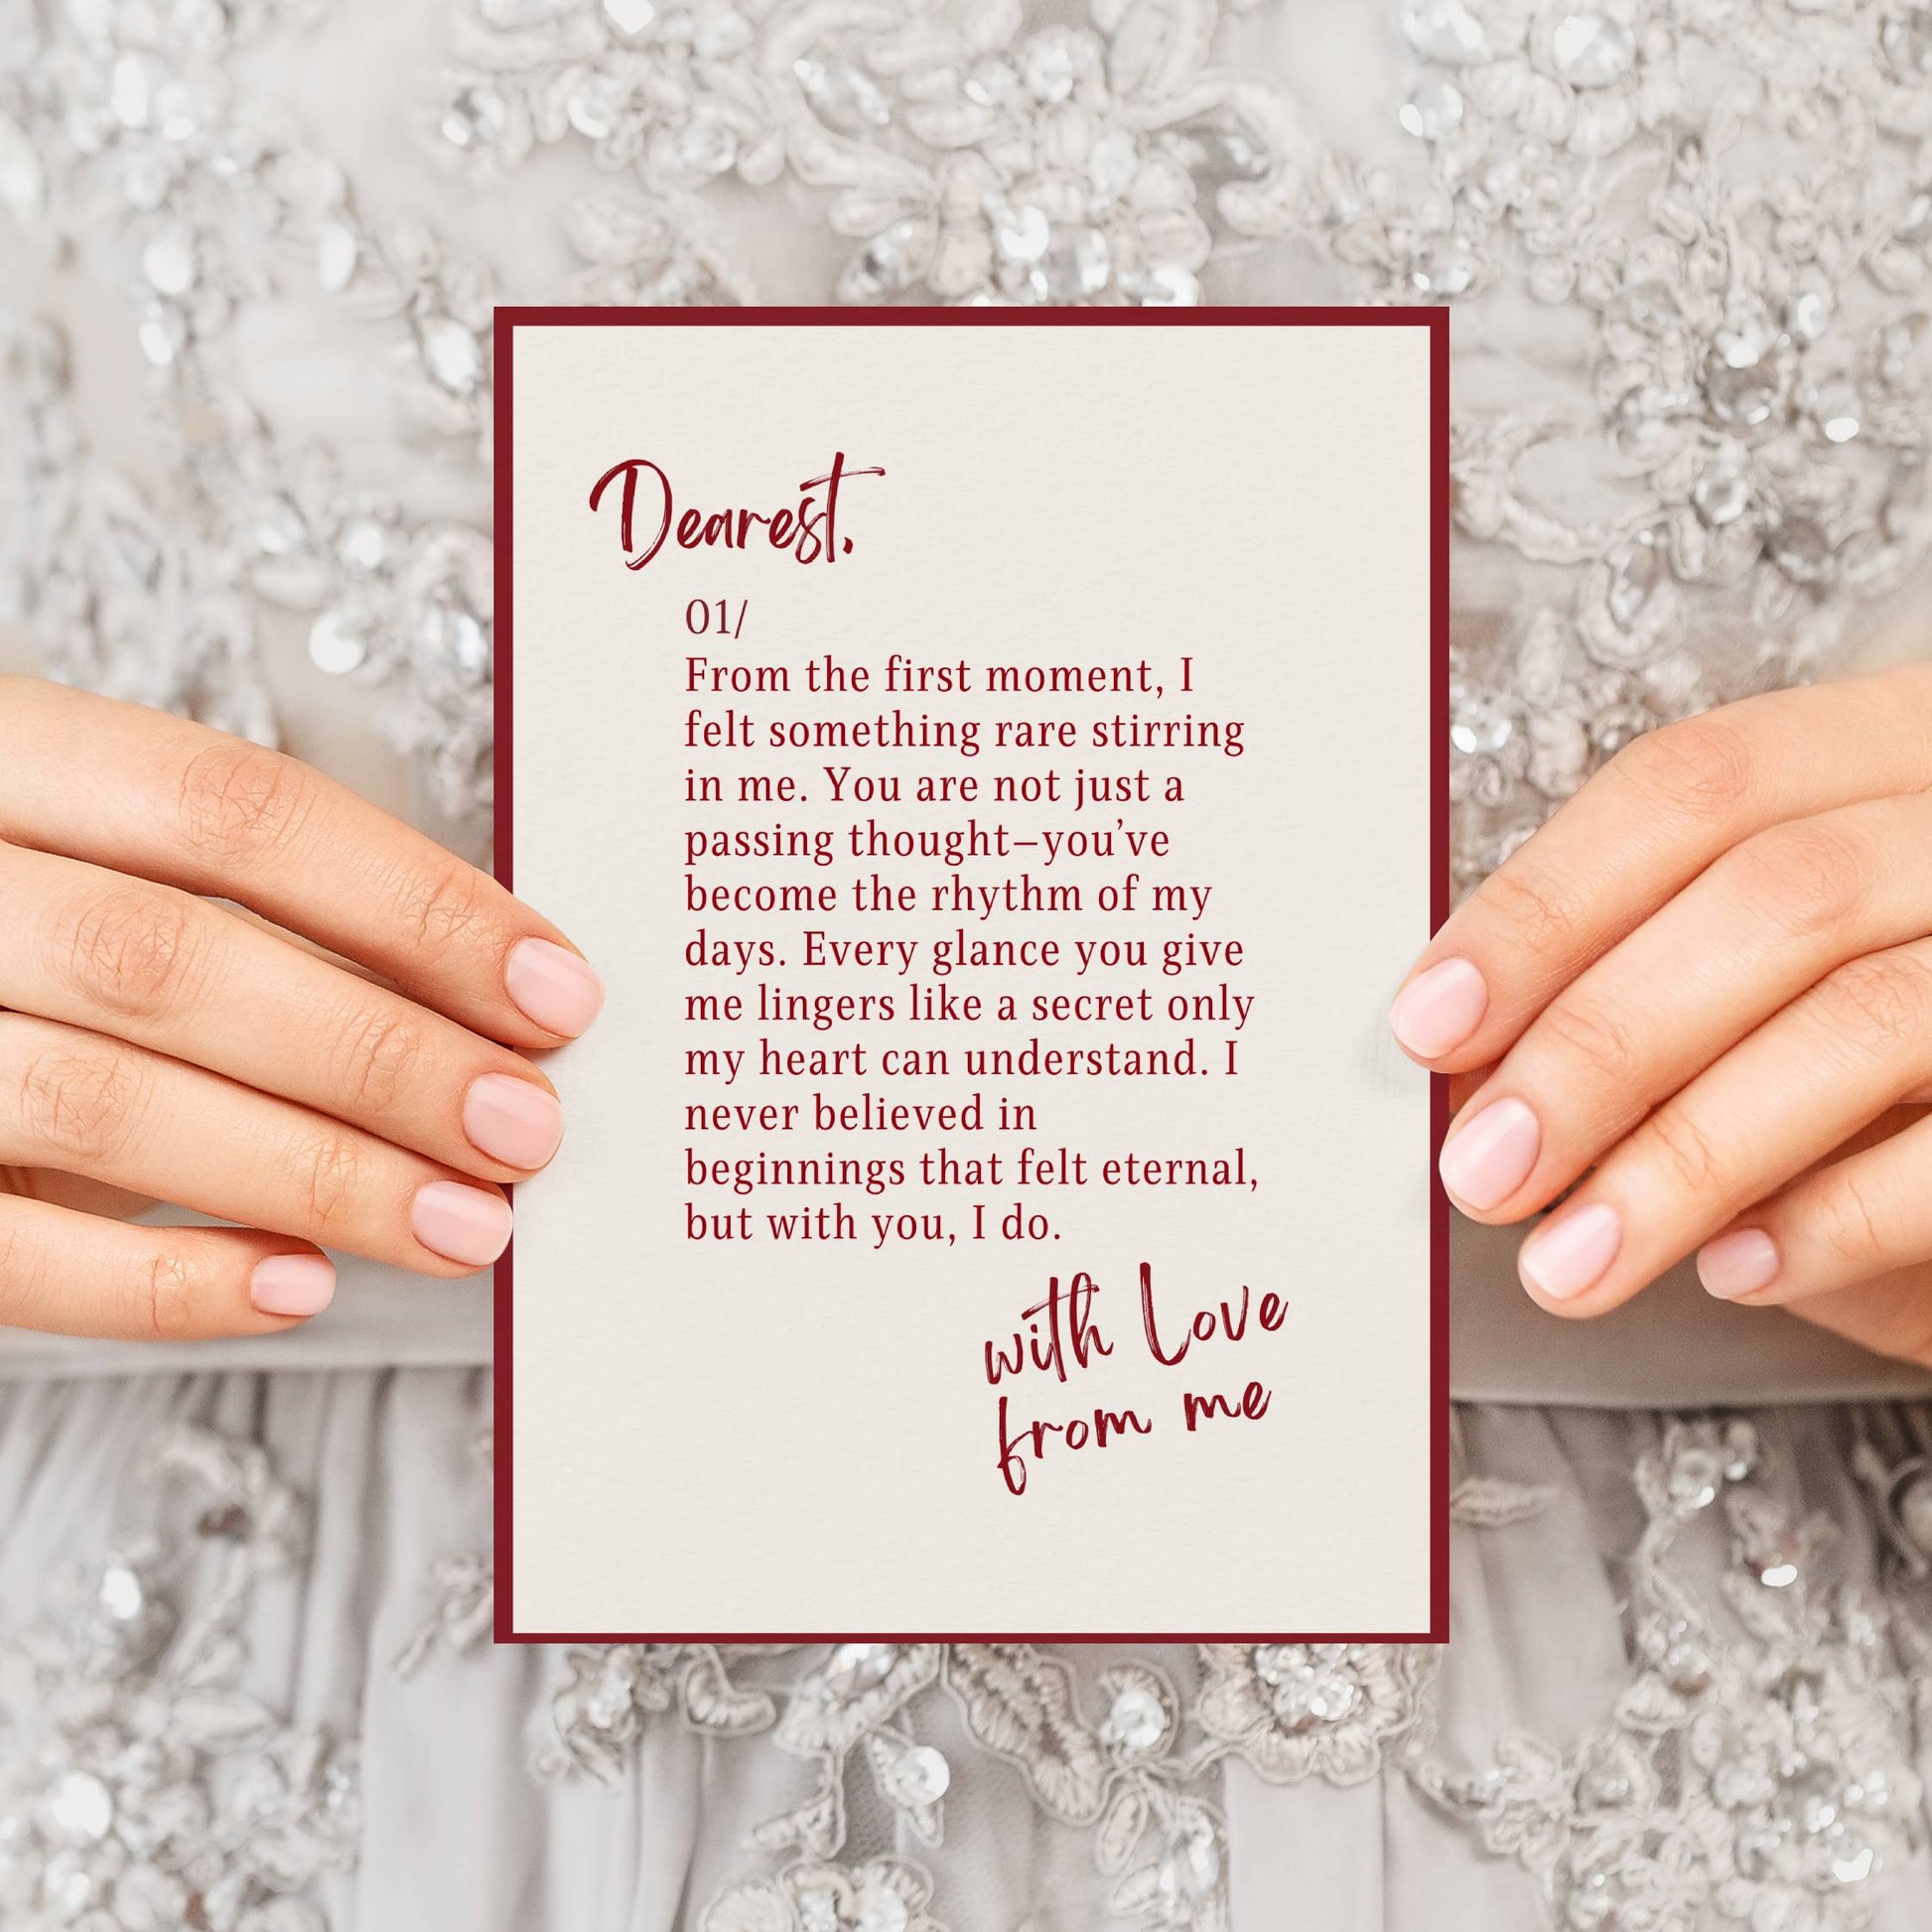 Dearest,
01/
From the first moment, I
felt something rare stirring
in me. You are not just a
passing thought—you’ve
become the rhythm of my
days. Every glance you give
me lingers like a secret only
my heart can understand. I
never believed in
beginnings that felt eternal,
but with you, I do.
with Love
from me